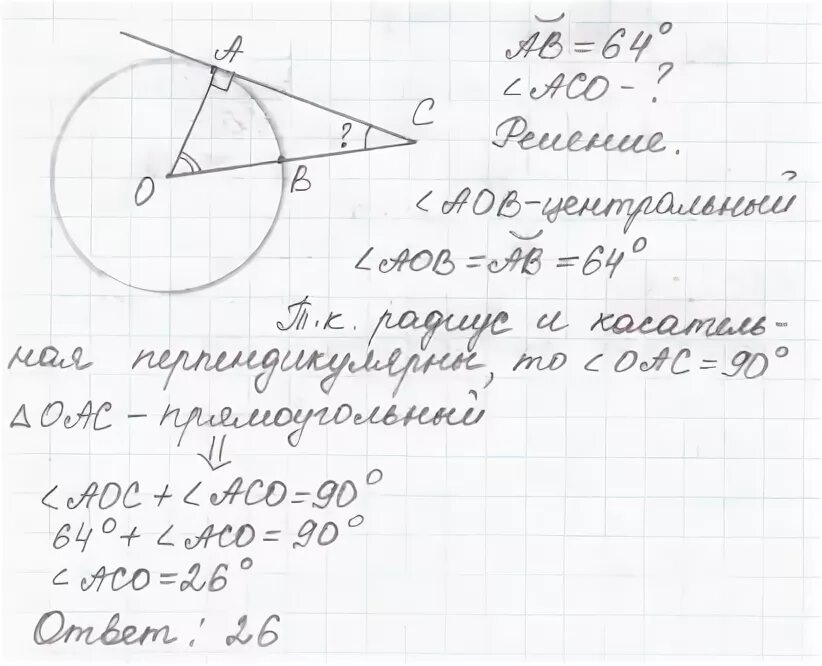 A
C
?
O
B
AB = 64°
∠ACO - ?
Решение.
∠AOB-центральный
∠AOB = AB = 64°
Т.к. радиус и касатель-
ная перпендикулярны, то ∠OAC = 90°
△OAC - прямоугольный
⇓
∠AOC + ∠ACO = 90°
64° + ∠ACO = 90°
∠ACO = 26°
Ответ: 26